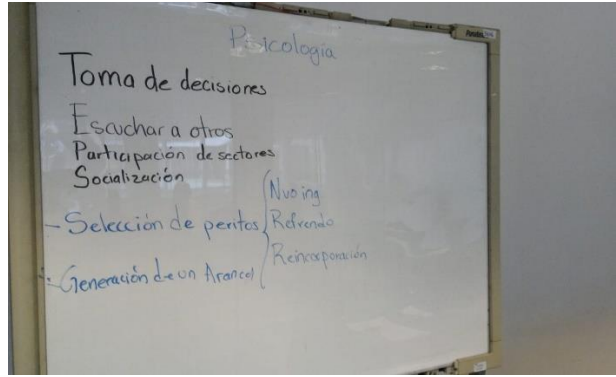 Psicología
Toma de decisiones
Escuchar a otros
Participación de sectores
Socialización
- Selección de peritos
Nvo ing
Refrendo
Reincorporación
- Generación de un Arancel